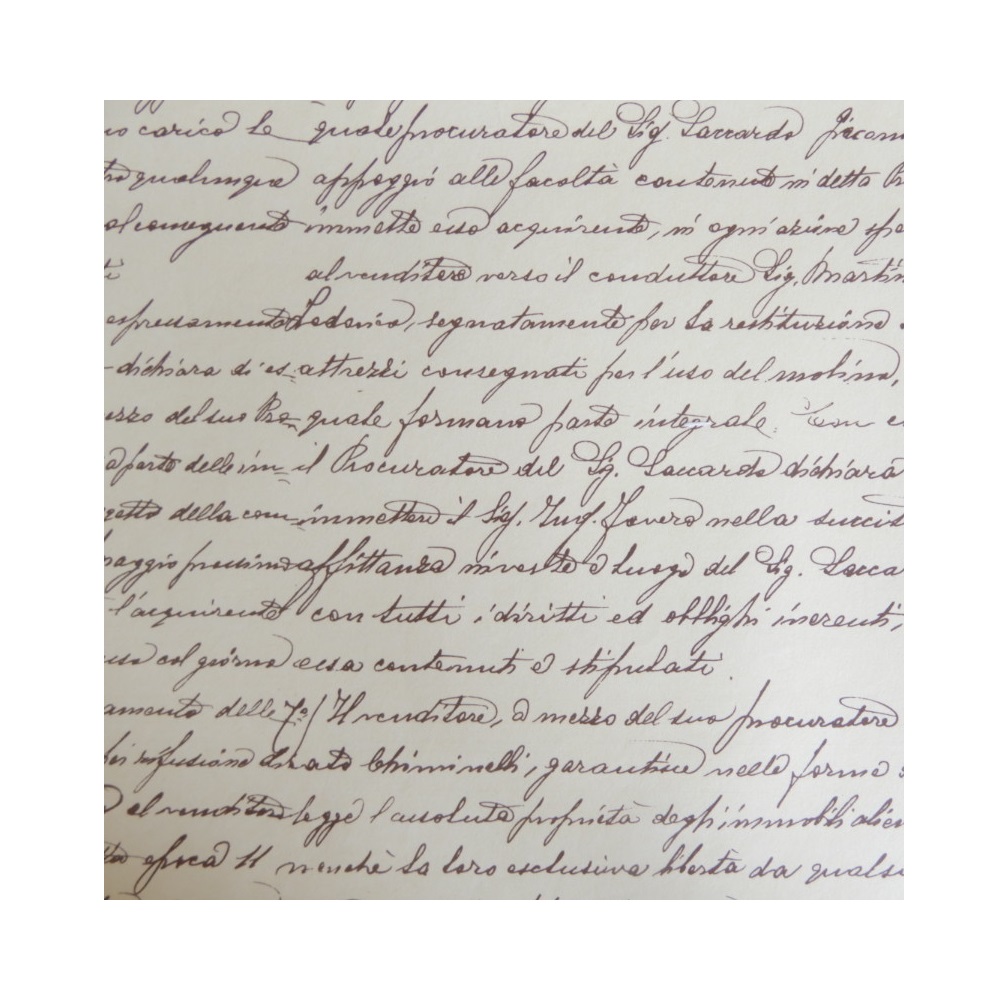 carico le quale procuratore del Sig. Saccardo
qualunque appoggio alle facoltà contenute in detta
al conseguente immette esso acquirente, in ogni azione
al venditore verso il conduttore Sig. Martin
espressamente Lodovico, segnatamente per la restituzione
dichiara di es- attrezzi consegnati per l'uso del molino,
del suo Pro- quale formano parte integrale. Con
a parte delle im- il Procuratore del Sg. Saccardo dichiara
della com- immettere il Sig. Ing. Favero nella
maggio prossimo affittanza investito e luogo del Sig. Sacca
l'acquirente con tutti i diritti ed obblighi inerenti,
col giorno essa contenuti e stipulati.
delle 7º/ Il venditore, a mezzo del suo procuratore
rifusione Chiminelli, garantisce nelle forme
el venditore legge l'assoluta proprietà degli immobili alien
epoca 11 nonchè la loro esclusiva libertà da qualsi